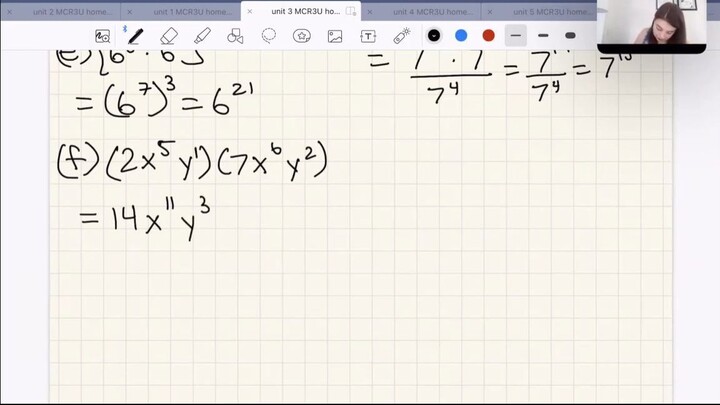 unit 2 MCR3U home...
unit 1 MCR3U home...
unit 3 MCR3U ho...
unit 4 MCR3U home...
unit 5 MCR3U home...
= (6^7)^3 = 6^21
7^4
7^4
(f) (2x^5 y^1)(7x^6 y^2)
= 14x^11 y^3